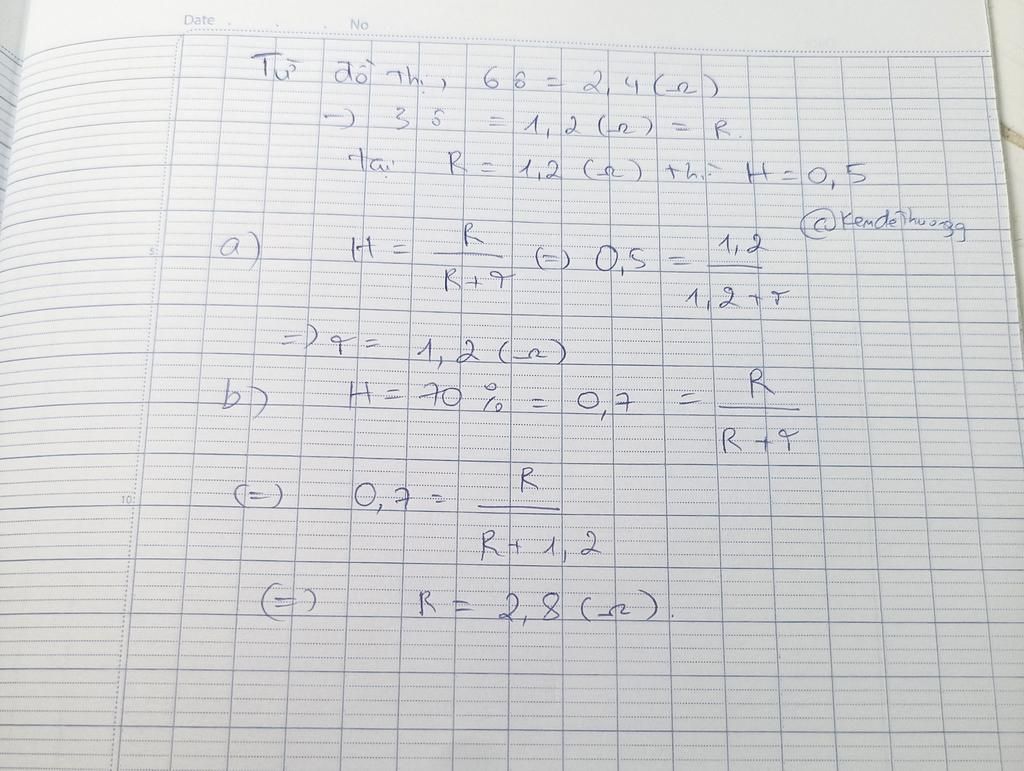 Date . . . No
Từ đồ thị, 6 ô = 2,4 (Ω)
→ 3 ô = 1,2 (Ω) = R.
tại R = 1,2 (Ω) thì H = 0,5
@Kemdethuongg
a) H = R / (R + r) (=) 0,5 = 1,2 / (1,2 + r)
=> r = 1,2 (Ω)
b) H = 70 % = 0,7 = R / (R + r)
(=) 0,7 = R / (R + 1,2)
10
(=) R = 2,8 (Ω).